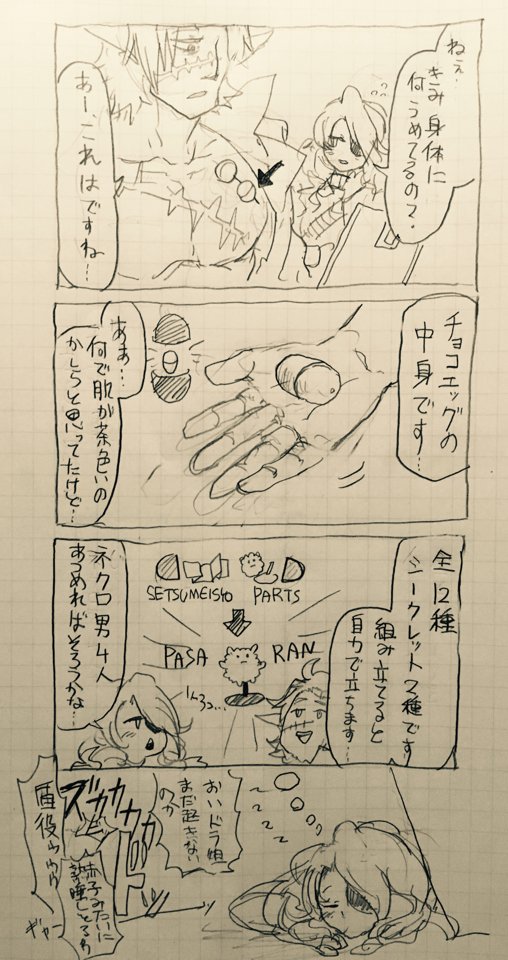 ねぇ、
きみ身体に
何うめてるの？
あー、これはですね…
チョコエッグの
中身です…
ああ…
何で肌が茶色いの
かしらと思ってたけど…
全12種
シークレット2種です
組み立てると
自力で立ちます…
SETSUMEISYO
PARTS
PASA
RAN
ネクロ男4人
あつめればそろうかな…
おいドラ娘
まだ起きない
のか
ズガガガガ
赤子みたいに
熟睡しとるわ
盾役ゥゥゥ
ギャー